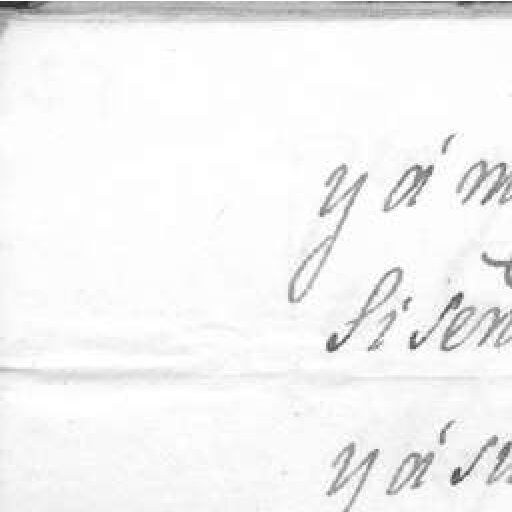 y á m
Si sen
y á su